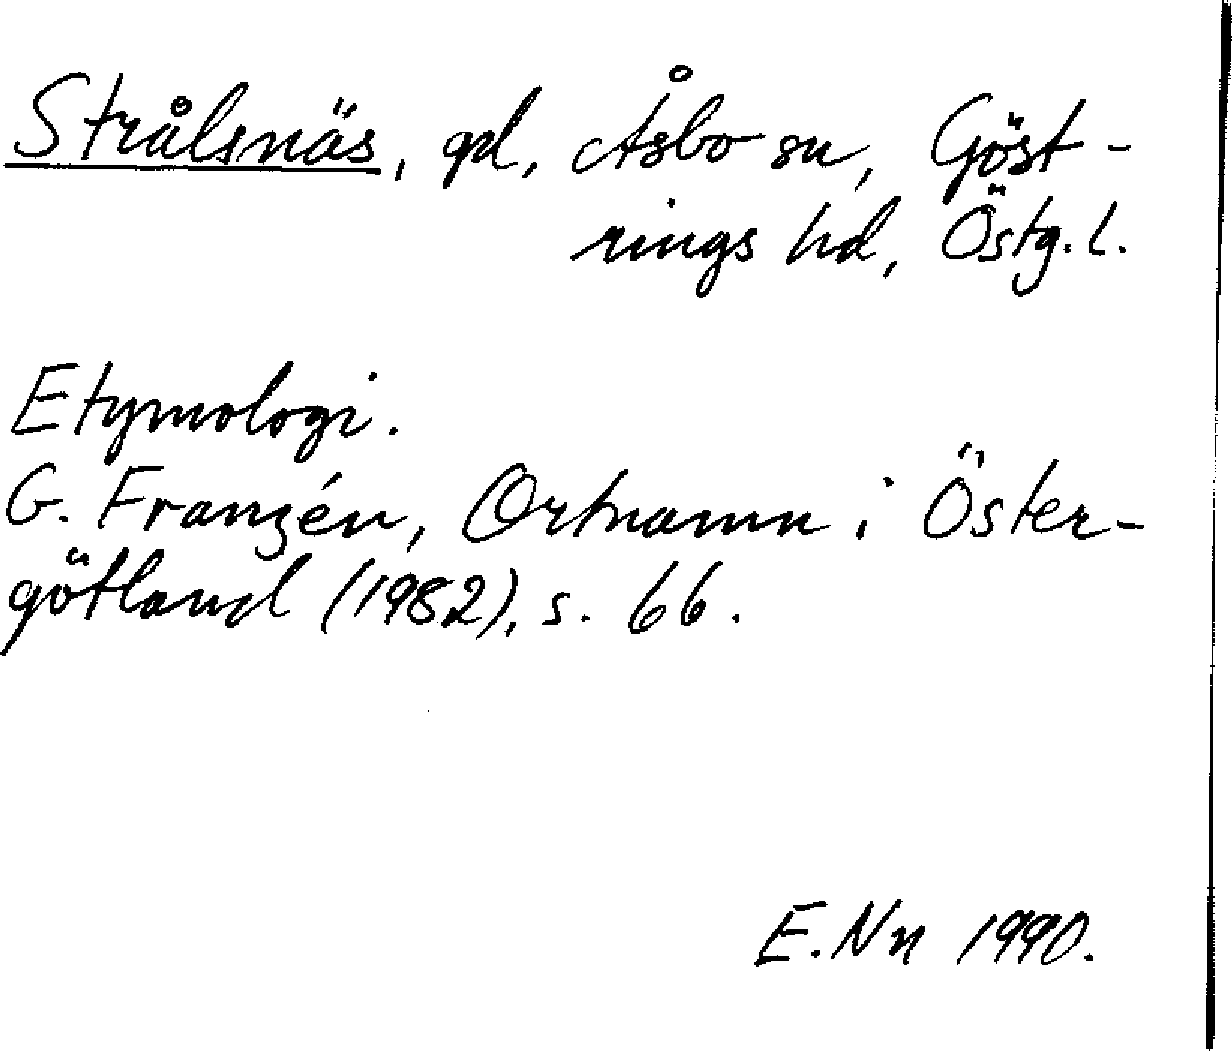 Strålsnäs, gd, Åsbo sn, Göst-
rings hd, Östg. l.
Etymologi.
G. Franzén, Ortnamn i Öster-
götland (1982), s. 66.
E. Nn 1990.